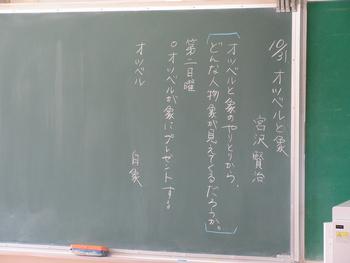 10/31 オツベルと象
宮沢賢治
オツベルと象のやりとりから、
どんな人物象が見えてくるだろうか。
第二日曜
○オツベルが象にプレゼントする。
オツベル
白象